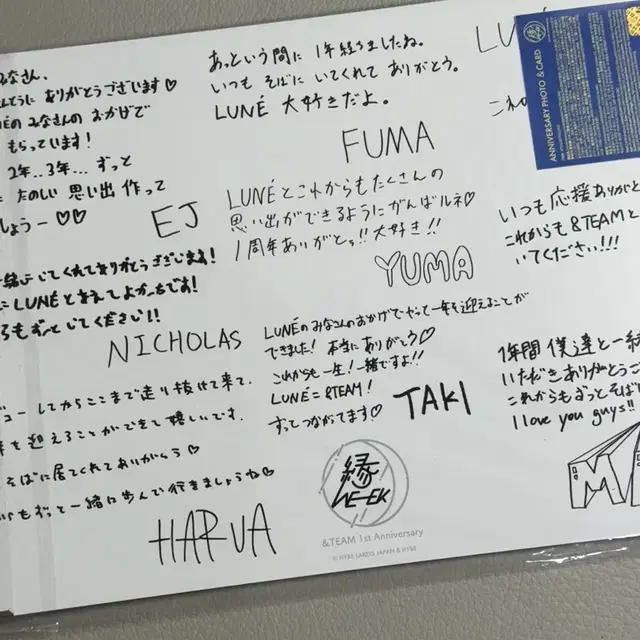 みなさん、
ありがとうございます♡
のみなさんのおかげで
もらっています!
2年..3年... ずっと
たのしい 思い出 作って
しょうー♡♡
EJ
あっという間に 1年経ちましたね。
いつも そばに いてくれて ありがとう。
LUNÉ 大好きだよ。
FUMA
LUNÉとこれからもたくさんの
思い出ができるようにがんばルネ♡
1周年ありがとっ!! 大好き!!
YUMA
LUNÉ
これ
いつも応援ありがと
これからも &TEAMと
いてください!!!
一緒にいてくれてありがとうございます!
LUNÉと
てよかったです!
もずっといてください!!
NICHOLAS
LUNÉのみなさんのおかげでやって一年を迎えることが
できました! 本当にありがとう♡
これからも一生!一緒ですよ!!
LUNÉ=&TEAM!
ずっとつながってます♡
TAKI
1年間 僕達と一緒
いただきありがとうご
これからもずっとそば
I love you guys!!
MA
ューしてからここまで走り抜けて来て、
を迎えることができて嬉しいです。
そばに居てくれてありがとう♡
もずっと一緒に歩んで行きましょうね♡
HARUA
縁
WE-EK
&TEAM 1st Anniversary
© HYBE LABELS JAPAN & HYBE
ANNIVERSARY PHOTO & CARD